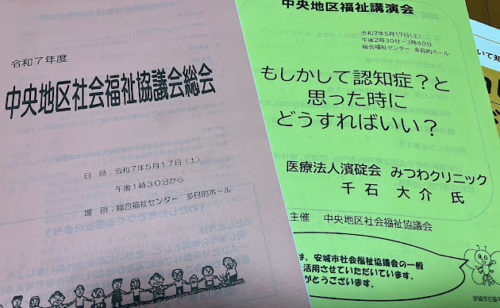 令和7年度
中央地区社会福祉協議会総会
日 時:令和7年5月17日(土)
午後1時30分から
場 所:総合福祉センター 多目的ホール
中央地区福祉講演会
令和7年5月17日(土)
午後2時30分~3時40分
総合福祉センター 多目的ホール
もしかして認知症?と
思った時に
どうすればいい?
医療法人濱碇会 みつわクリニック
千石 大介 氏
主催 中央地区社会福祉協議会
は、安城市社会福祉協議会の一般
活用させていただいています。
がとうございます。